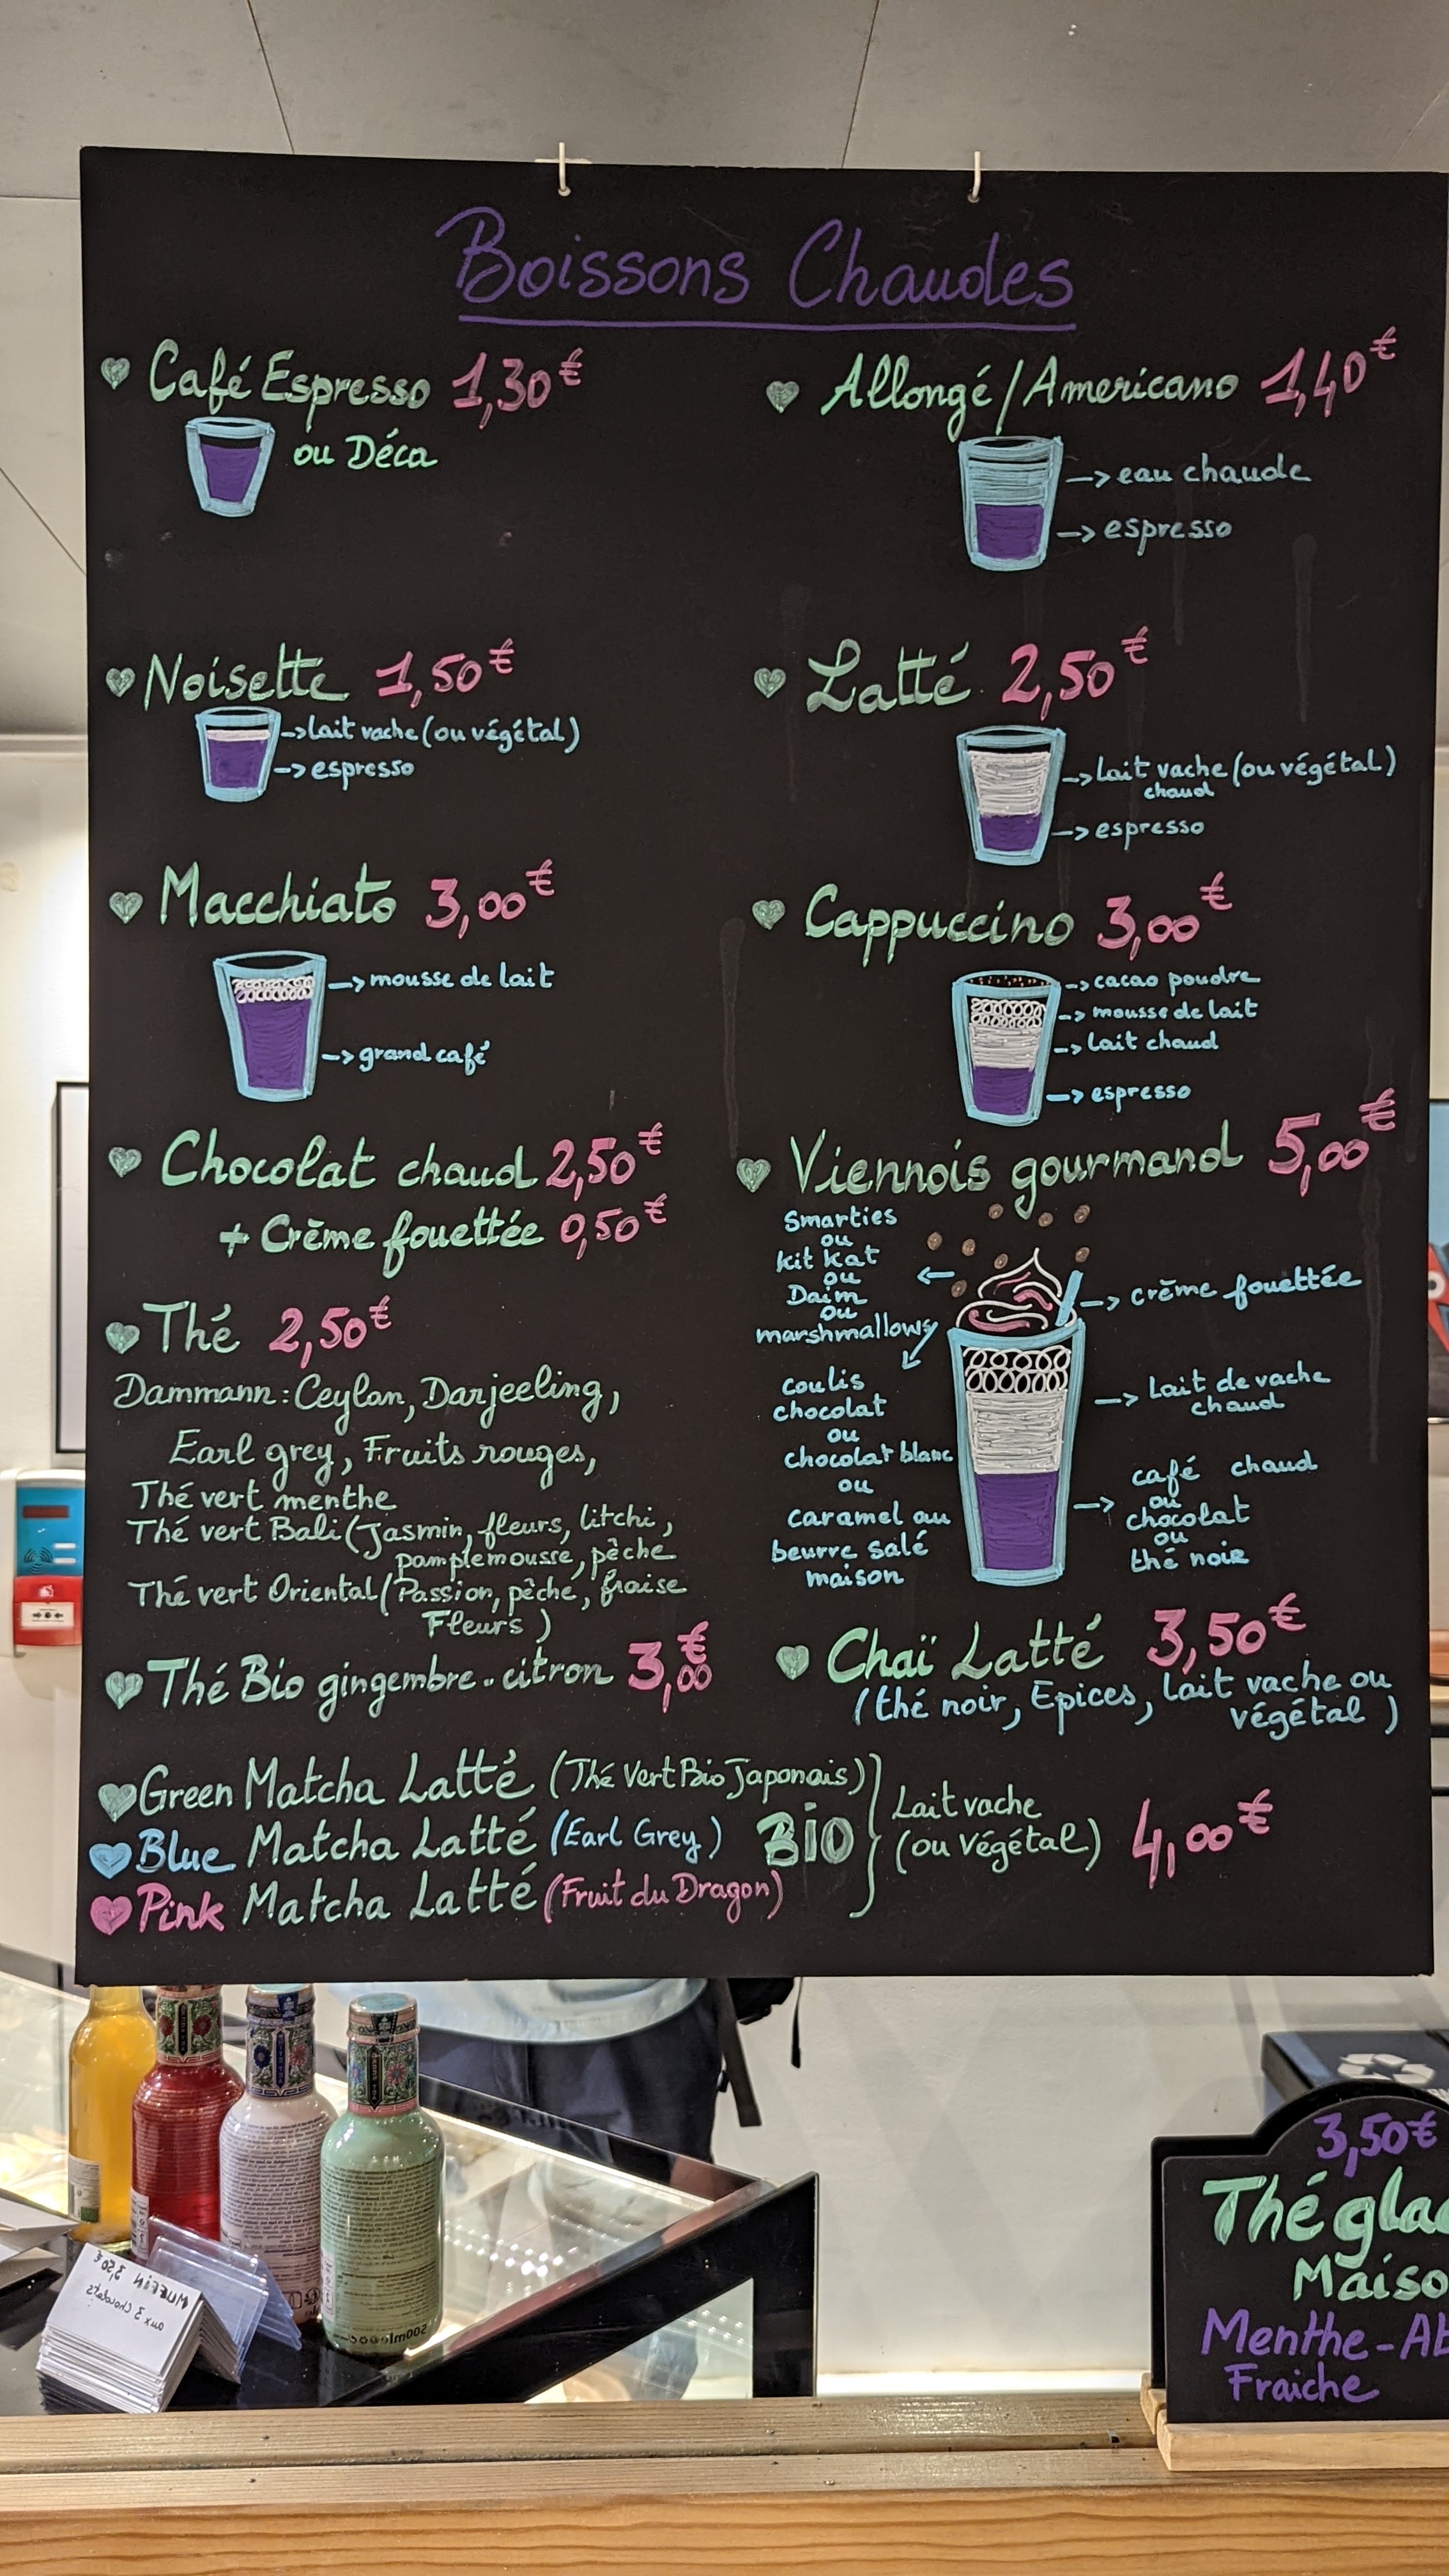 Boissons Chaudes
Café Espresso 1,30€
ou Déca
Allongé/Americano 1,40€
→ eau chaude
→ espresso
Noisette 1,50€
→ lait vache (ou végétal)
→ espresso
Latté 2,50€
→ Lait vache (ou végétal)
chaud
→ espresso
Macchiato 3,00€
→ mousse de lait
→ grand café
Cappuccino 3,00€
→ cacao poudre
→ mousse de lait
→ lait chaud
→ espresso
Chocolat chaud 2,50€
+ Crème fouettée 0,50€
Viennois gourmand 5,00€
Smarties
ou
kit kat
ou
Daim
ou
marshmallows
coulis
chocolat
ou
chocolat blanc
ou
caramel au
beurre salé
maison
→ crème fouettée
→ Lait de vache
chaud
→ café chaud
ou
chocolat
ou
thé noir
Thé 2,50€
Dammann: Ceylan, Darjeeling,
Earl grey, Fruits rouges,
Thé vert menthe
Thé vert Bali (Jasmin, fleurs, litchi,
pamplemousse, pêche
Thé vert Oriental (Passion, pêche, fraise
Fleurs)
Thé Bio gingembre-citron 3,00€
Chaï Latté 3,50€
(thé noir, Epices, lait vache ou
végétal)
Green Matcha Latté (Thé Vert Bio Japonais)
Blue Matcha Latté (Earl Grey)
Pink Matcha Latté (Fruit du Dragon)
BIO
Lait vache
(ou Végétal)
4,00€
MUFFIN 3,50€
aux 3 chocolats
500ml
3,50€
Thé gla
Maiso
Menthe-
Fraiche